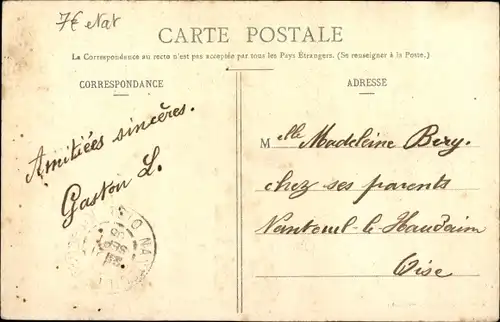 7€ etat
CARTE POSTALE
La Correspondance au recto n'est pas acceptée par tous les Pays Étrangers. (Se renseigner à la Poste.)
CORRESPONDANCE
Amitiées sincères.
Gaston L.
ADRESSE
Melle Madeleine Bery.
chez ses parents
Nanteuil-le-Haudoin
Oise